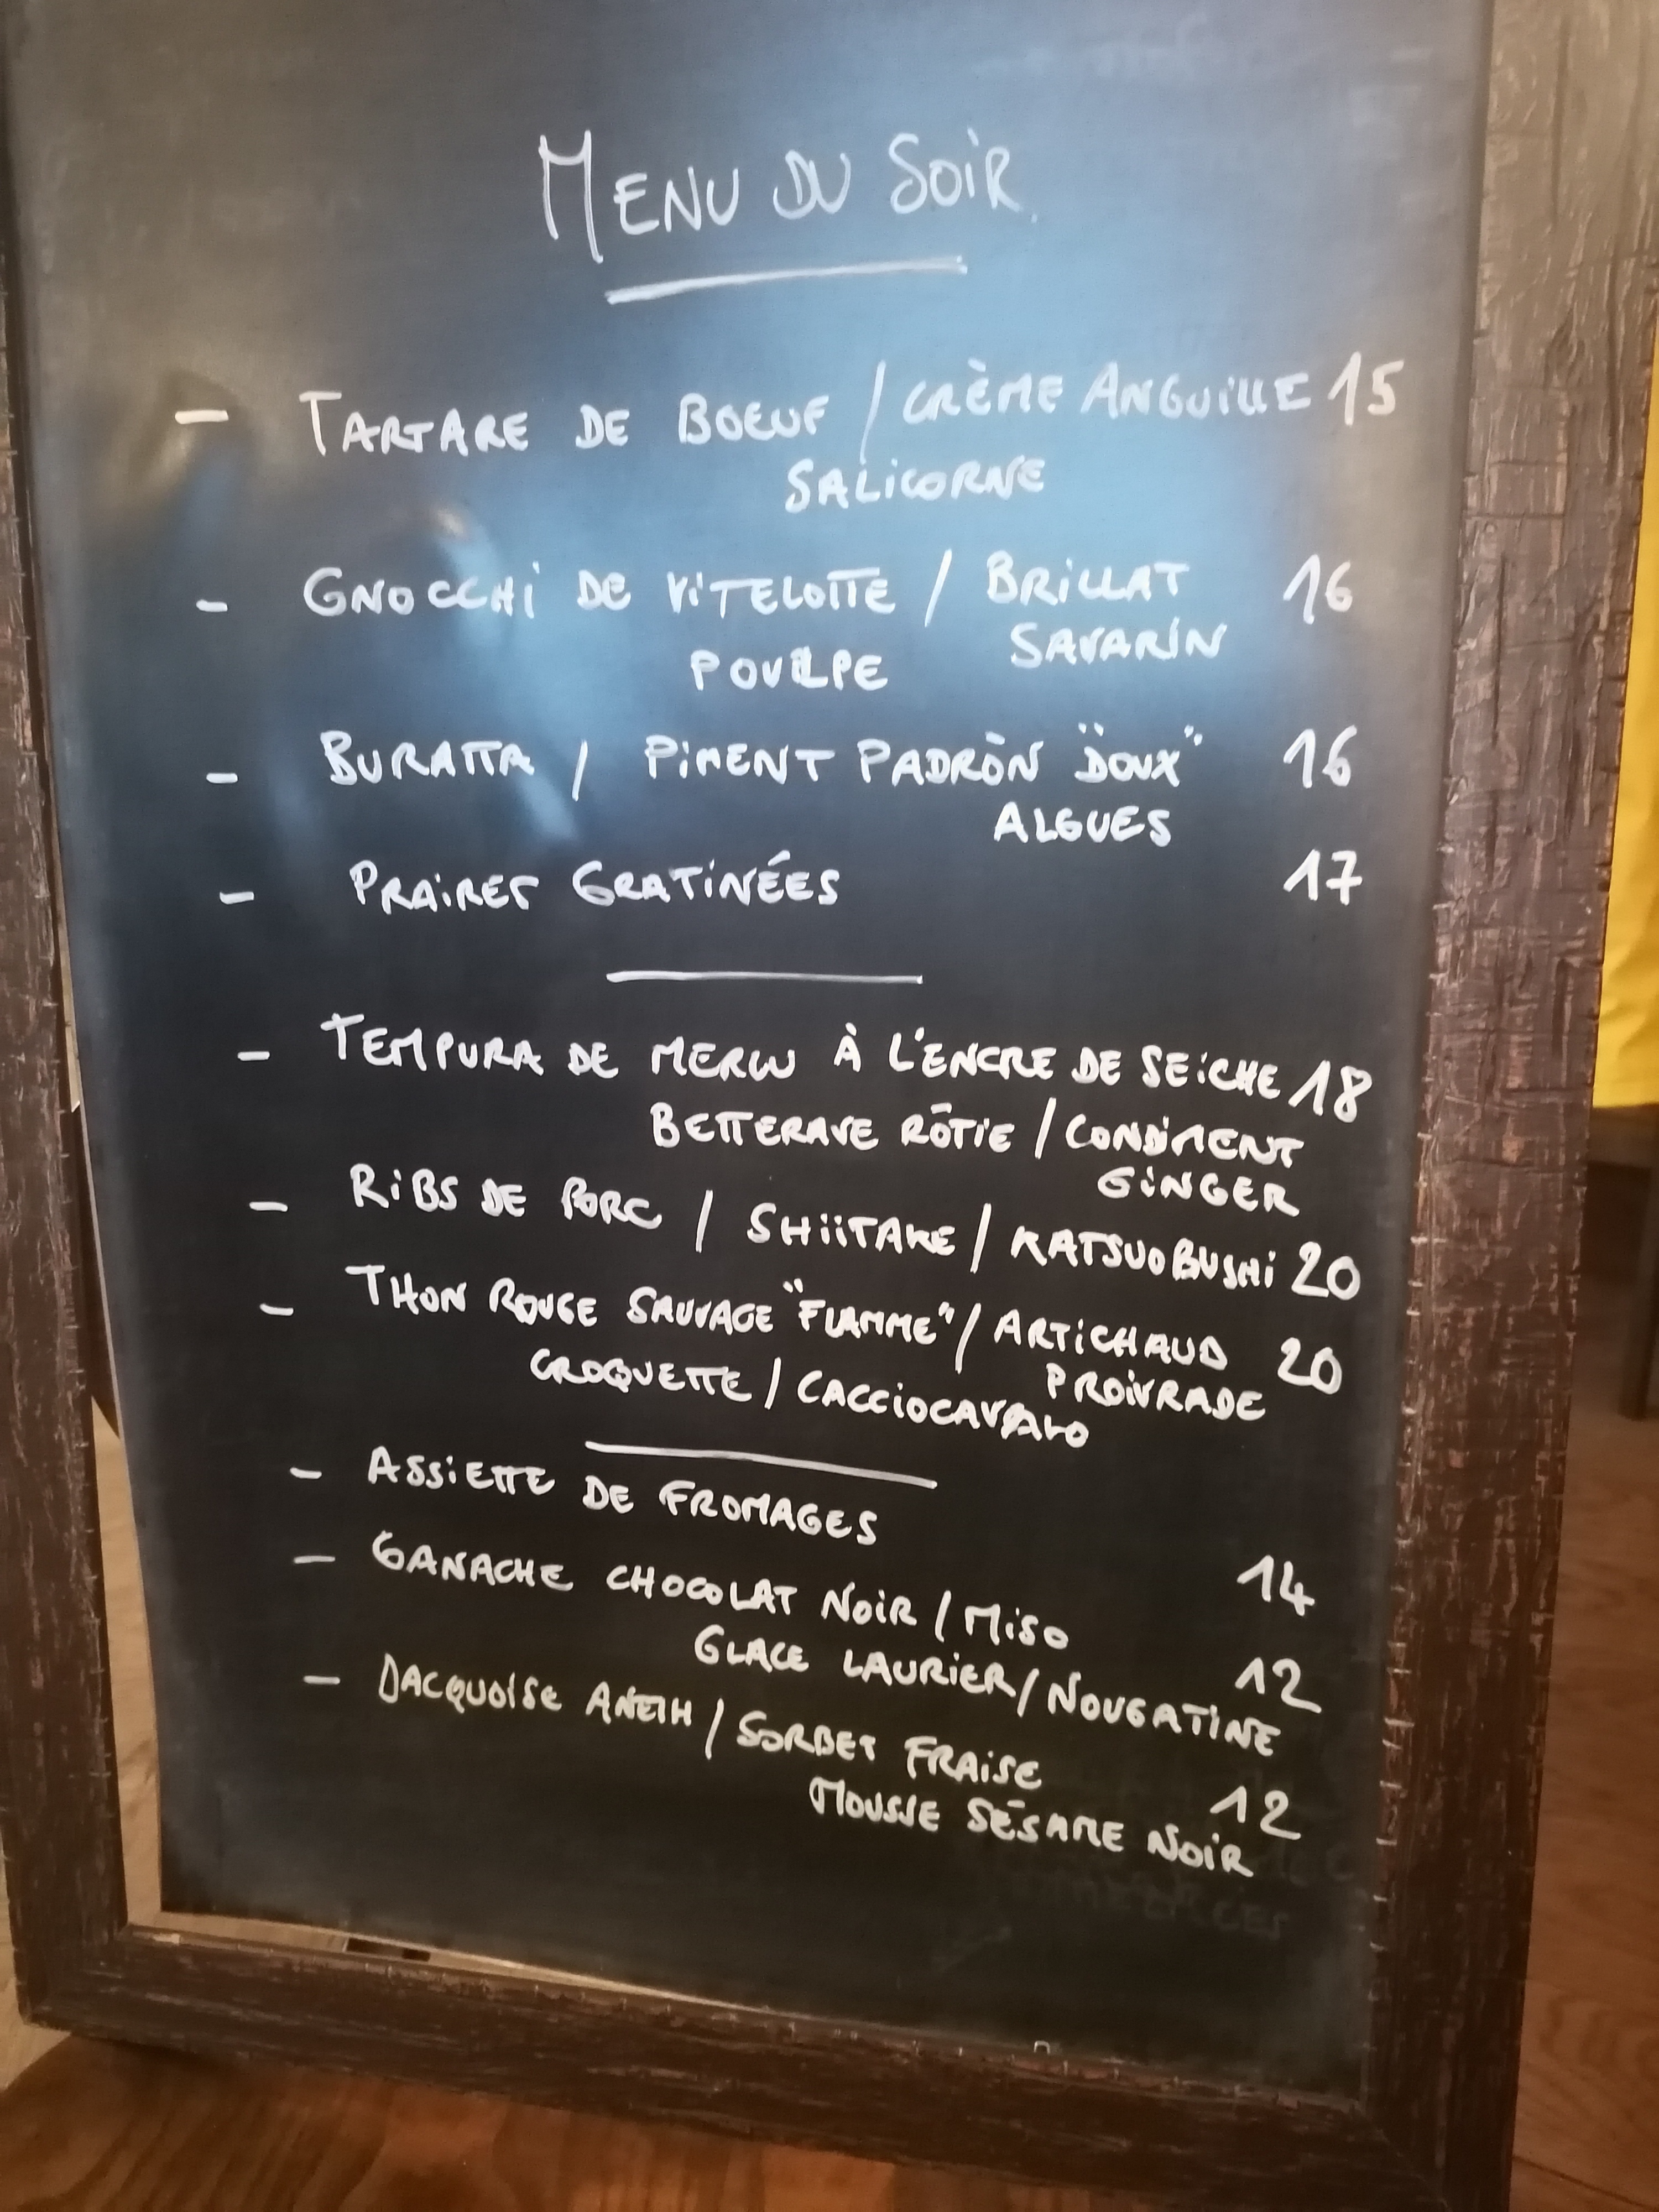 MENU DU SOIR
- TARTARE DE BOEUF / CRÈME ANGUILLE 15
SALICORNE
- GNOCCHI DE VITELOTTE / BRILLAT 16
POULPE SAVARIN
- BURATTA / PIMENT PADRÒN "DOUX" 16
ALGUES
- PRAIRES GRATINÉES 17
- TEMPURA DE MERLU À L'ENCRE DE SEICHE 18
BETTERAVE RÔTIE / CONDIMENT
GINGER
- RIBS DE PORC / SHIITAKE / KATSUOBUSHI 20
- THON ROUGE SAUVAGE "FLAMME" / ARTICHAUD 20
PROIVRADE
CROQUETTE / CACCIOCAVALO
- ASSIETTE DE FROMAGES 14
- GANACHE CHOCOLAT NOIR / MISO
GLACE LAURIER / NOUGATINE 12
- DACQUOISE ANETH / SORBET FRAISE
MOUSSE SÉSAME NOIR 12